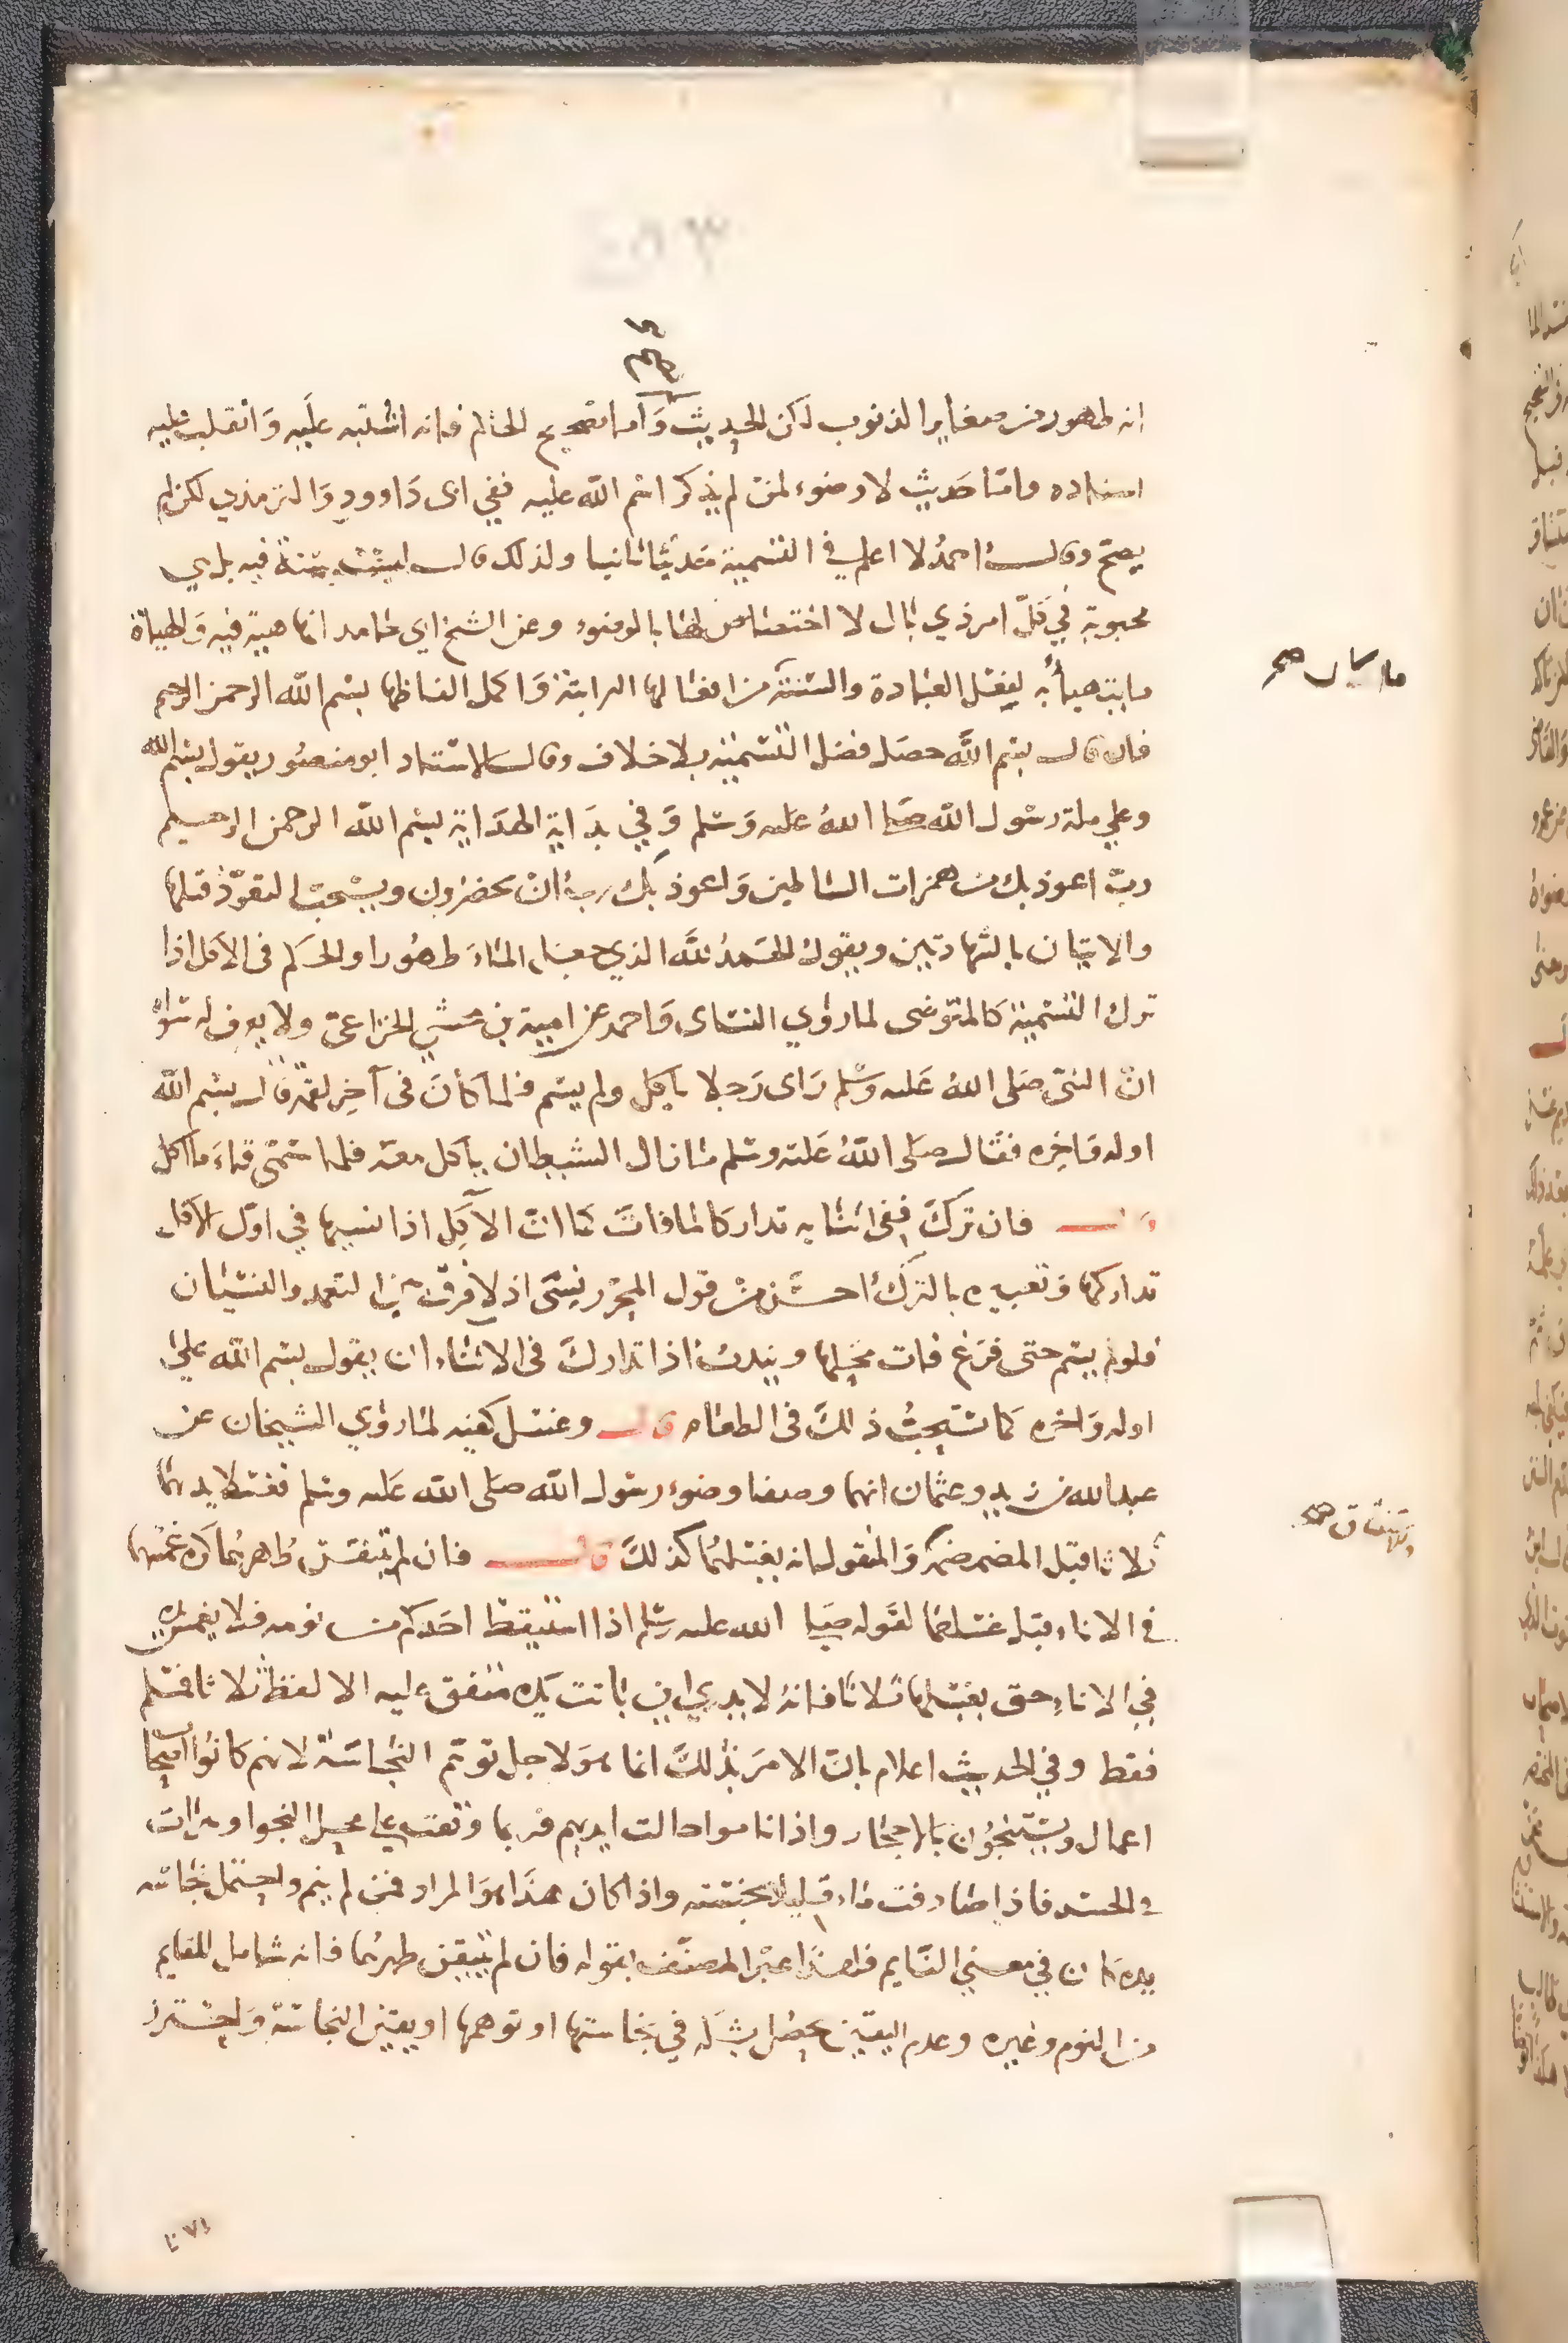 ٤٥٣
انه طهور من صغاير الذنوب لكن الحديث وَاما تصحيح الحاكم فانه اشتبه علَيه وَانقلب عليه
اسناده وامّا حَديث لا وضوء لمنْ لم يذكر اسْم الله عليه ففي ابى دَاوود وَالترمذي لكن لم
يصحّ وقال احمدُ لا اعلم في التسْمية حَديثا ثابتا ولذلك قال ليسَت بسنة فيه بل هي
محبوبة في كلّ امر ذي بال لا اختصَاص لها بالوضوء وعن الشيخ ابي حَامد انها هيئة فيه وَالهياة
ما يتهيأ به لفعْل العبَادة والسُّنّة من افعَالها الراتبَة وَاكمل الفاظها بسْم الله الرحمن الرحيم
فان قال بسْم الله حصَل فضل التسْمية بلا خلاف وقال الاسْتَاد ابو منصُور يقول بسْم الله
وعلي ملة رسُول الله صَلى اللهُ عليه وَسَلم وَفي بدَاية الهدَاية بسْم الله الرحمن الرحيم
ربّ اعوذ بك من همزات الشياطين وَاعوذ بك رب انْ يحضرون ويسْتحبّ التعوّذ قبلها
والاتيان بالشهادتين ويقولُ الحَمدُ للَّه الذي جعَل المَاءَ طهُورا والحكم فى الآكل اذا
ترك التسْمية كالمتوضى لما رَوي النسَاى وَاحمد عن امية بن مخشي الخزاعىّ ولا يعرف له سوَاهُ
انّ النبىّ صَلى اللهُ عَليه وَسَلم رَاى رَجلا ياكل ولم يسَم فلما كانَ فى آخِر لقمة قال بسْم الله
اوله وَاخِره فقال صَلى اللهُ عَليْه وسَلم مَا زال الشيطان ياكل معَه فلما سَمّى قاءَ ما اكل
قال فان تركَ ففى اثنَايه تداركا لما فاتَ كمَا انّ الآكِل اذا نسيها في اوّل الاكل
تداركها وَتعبيره بالتركِ احسَن منْ قول المحرّر نسَى اذ لا فرقَ بين التعمد والنسْيان
فلو لم يسَم حتى فرَغ فات محلها ويندبُ اذا تداركَ فى الاثنَاء ان يقول بسْم الله علىَ
اوله وَاخره كمَا يسْتحبُّ ذلكَ فى الطعَام قال وغسْل كفيه لمَا رَوي الشيخان عن
عبد الله بن زيد وعثمان انهما وصفا وضوء رسُول الله صَلى الله عَليه وسَلم فغسَلا يديهمَا
ثلاثا قبل المضمضة وَالمنقول انه يغسلهُمَا كذلكَ قال فان لم يتيقن طُهرهُمَا كرهَ غمْسهما
في الاناء قبل غسْلهمَا لقوله صَلى الله عليه وسَلم اذا استيقظ احَدكم من نومه فلا يغمسْ يده
في الاناءِ حتى يغسْلها ثلاثا فانهُ لا يدري اين بَاتت يَده متفق عليه الا لفظ ثلاثا فمسْلم
فقط وفي الحديث اعلام بانّ الامرَ بذلكَ انما هوَ لاجل توهم النجَاسَة لانهم كانوُا اصحَاب
اعمال ويسْتنجُون بَالاحجَار واذا ناموا جالت ايديهم فربما وقعت علي محل النجو او بثرات
في الجسَد فاذا صَادفت مَاء قليلا نجستَه واذا كان هذَا هوَ المراد فمَن لم ينم واحتمل نجَاسَة
يده كان في معني النَّايم فلهذَا عبّر المصَنّف بقوله فان لم يتيقن طهرهُما فانه شامل للقايم
من النوم وغيره وعدم اليقين يحصُل بشَكه في نجاستها او توهمها او يقين النجاسَة وَاحْتَرز
صح